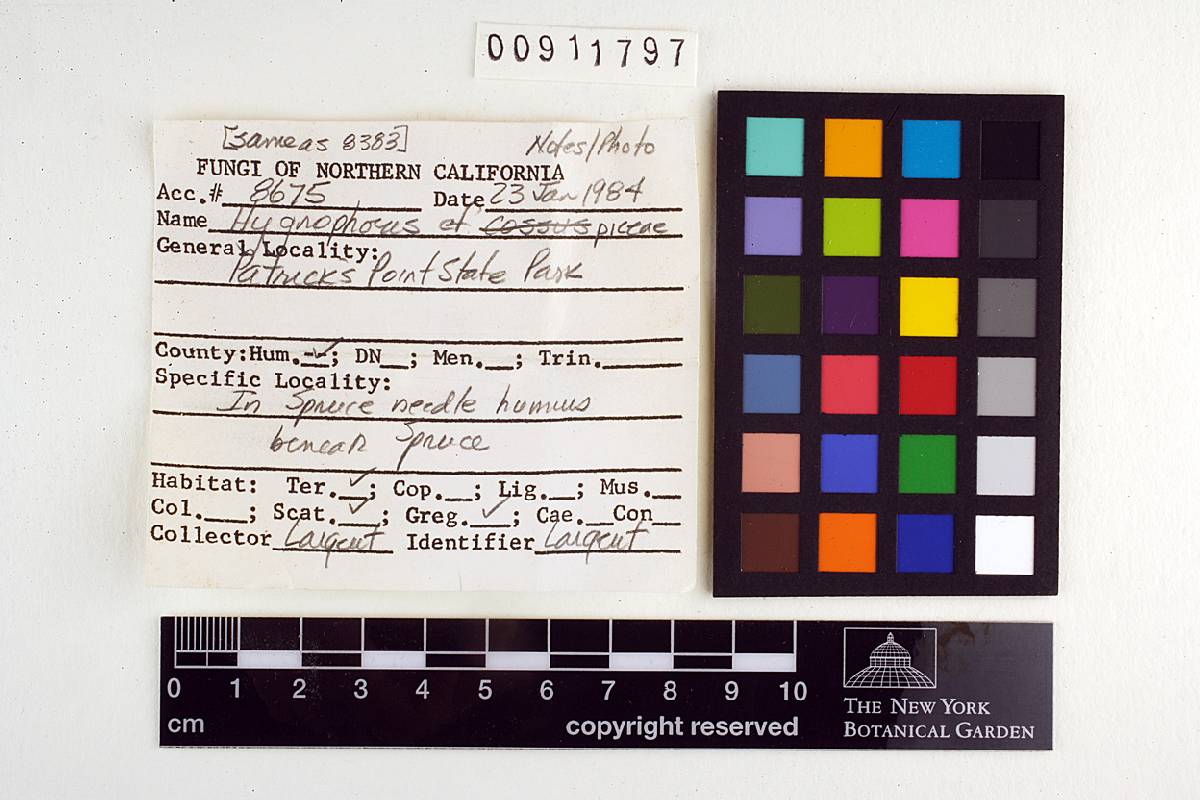 00911797
[same as 8383] Notes/Photo
FUNGI OF NORTHERN CALIFORNIA
Acc.# 8675 Date 23 Jan 1984
Name Hygrophorus cf cossus piceae
General Locality:
Patrick's Point State Park
County: Hum.--✓; DN__; Men.__; Trin.
Specific Locality:
In Spruce needle humus
beneath Spruce
Habitat: Ter.✓; Cop.__; Lig.__; Mus.__
Col.___; Scat.✓; Greg.✓; Cae.__Con__
Collector Largent Identifier Largent
0 1 2 3 4 5 6 7 8 9 10
cm copyright reserved
THE NEW YORK
BOTANICAL GARDEN